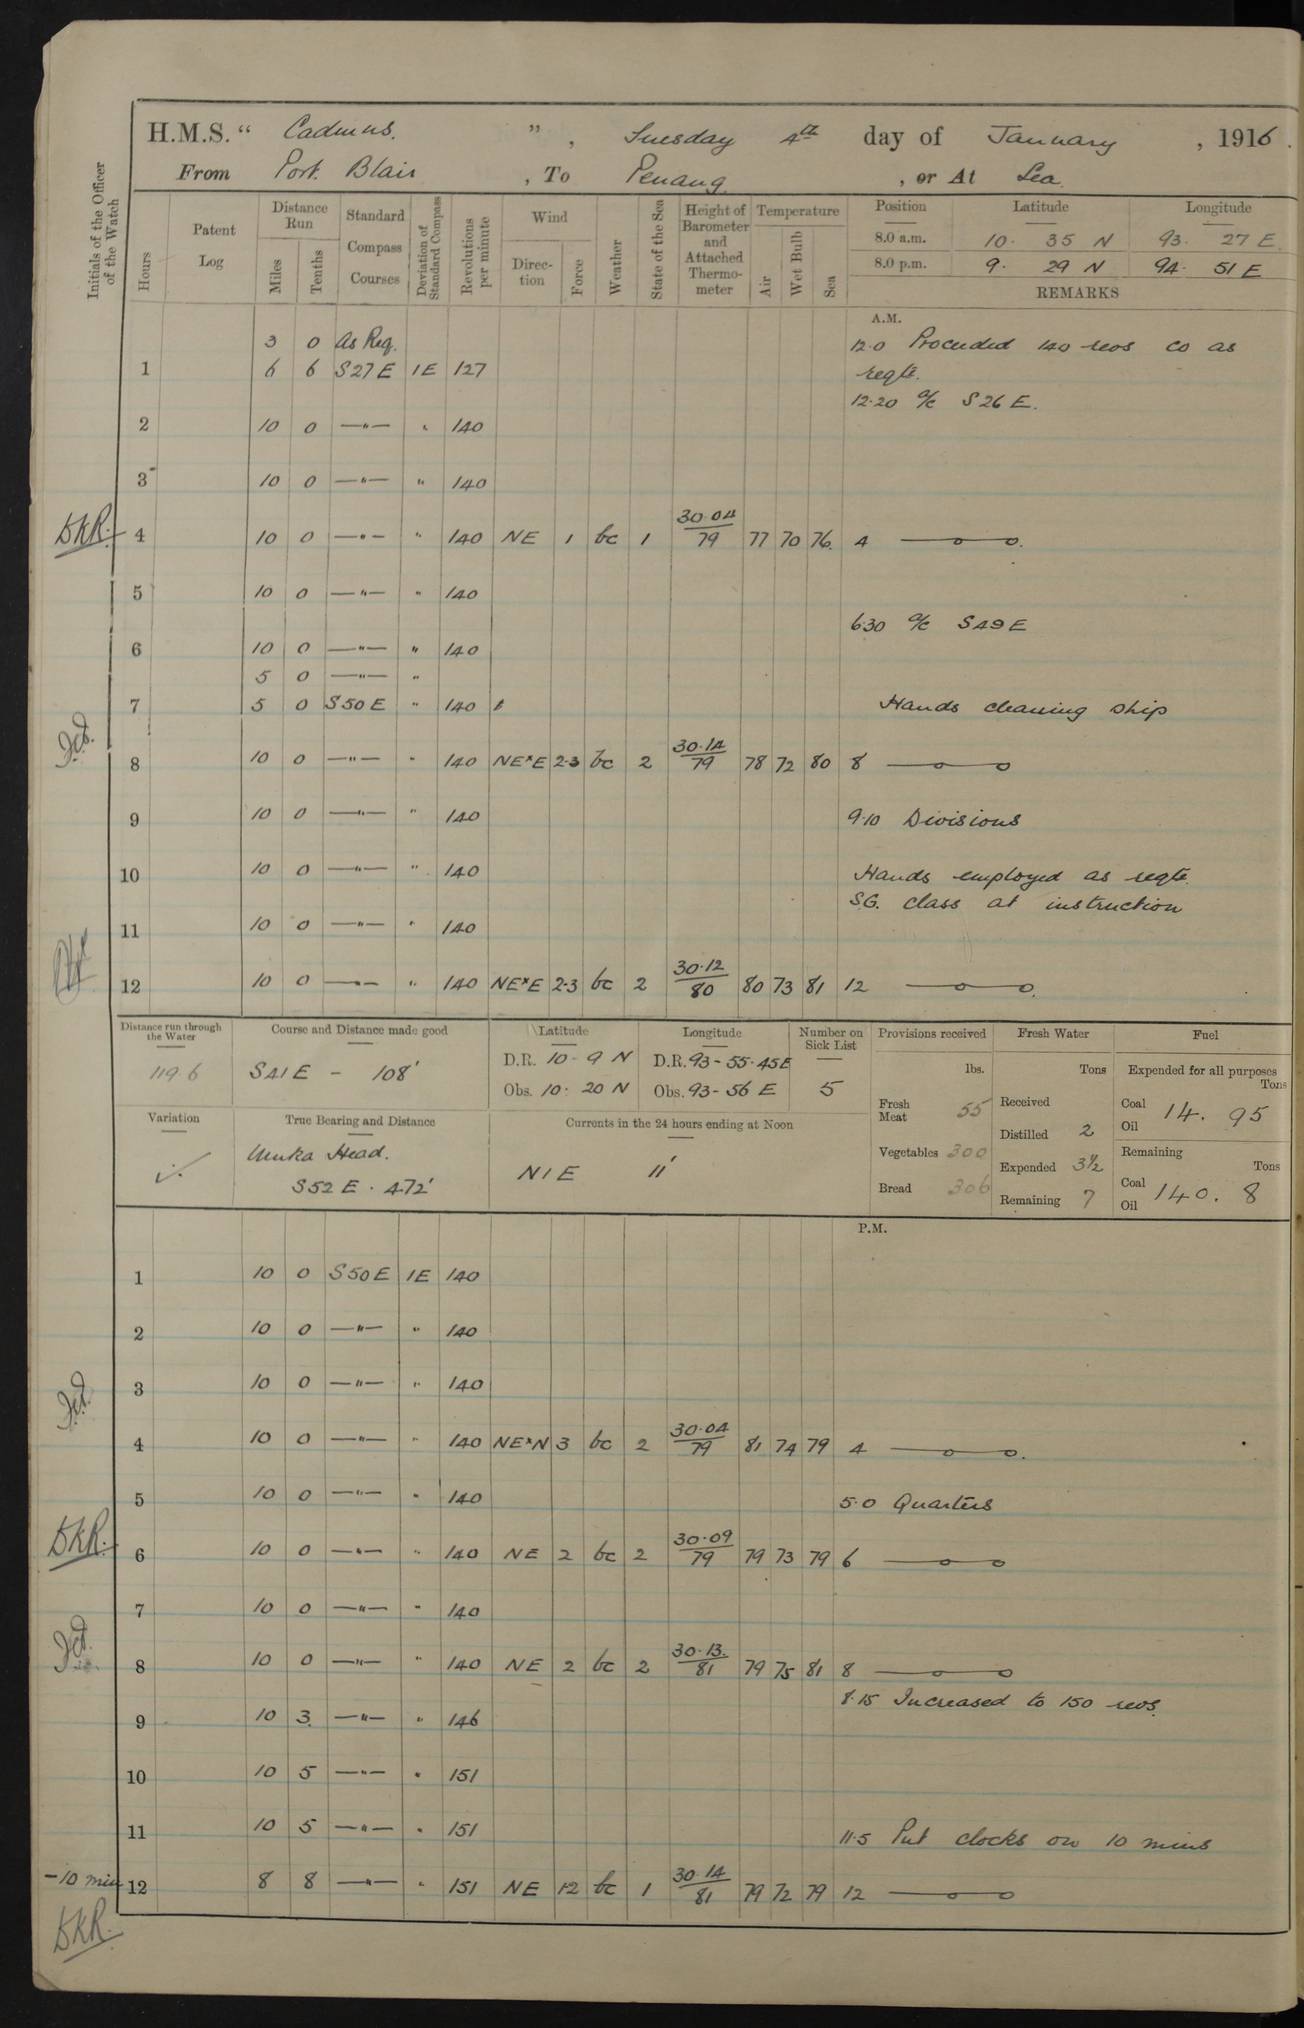 H.M.S. " Cadmus. ", Tuesday 4th day of January, 1916.
From Port Blair, To Penang, or At Sea.
Initials of the Officer of the Watch
Hours
Patent Log
Distance Run
Miles
Tenths
Standard Compass Courses
Deviation of Standard Compass
Revolutions per minute
Wind
Direction
Force
Weather
State of the Sea
Height of Barometer and Attached Thermometer
Temperature
Air
Wet Bulb
Sea
Position Latitude Longitude
8.0 a.m. 10. 35 N 93. 27 E.
8.0 p.m. 9. 29 N 94. 51 E
REMARKS
A.M.
3 0 As Req. 12.0 Proceeded 140 revs co as
1 6 6 S27E 1E 127 reqte.
12.20 a/c S26E.
2 10 0 —"— " 140
3 10 0 —"— " 140
BKR. 4 10 0 —"— " 140 NE 1 bc 1 30.04/79 77 70 76. 4 —o—o.
5 10 0 —"— " 140
6.30 a/c S49E
6 10 0 —"— " 140
5 0 —"— "
7 5 0 S50E " 140 Hands cleaning ship
8 10 0 —"— " 140 NExE 2.3 bc 2 30.14/79 78 72 80 8 —o—o
9 10 0 —"— " 140 9.10 Divisions
10 10 0 —"— " 140 Hands employed as reqte.
S.G. class at instruction
11 10 0 —"— " 140
12 10 0 —"— " 140 NExE 2.3 bc 2 30.12/80 80 73 81 12 —o—o.
Distance run through the Water
119 6
Course and Distance made good
S41E - 108'
Latitude
D.R. 10 - 9 N
Obs. 10. 20 N
Longitude
D.R. 93 - 55.45E
Obs. 93 - 56 E
Number on Sick List
5
Provisions received
lbs.
Fresh Meat 55
Vegetables 300
Bread 306
Fresh Water
Tons
Received
Distilled 2
Expended 3½
Remaining 7
Fuel
Expended for all purposes
Tons
Coal 14. 95
Oil
Remaining
Tons
Coal 140. 8
Oil
Variation
True Bearing and Distance
Muka Head.
S52E . 472'
Currents in the 24 hours ending at Noon
N1E 11'
P.M.
1 10 0 S50E 1E 140
2 10 0 —"— " 140
3 10 0 —"— " 140
4 10 0 —"— " 140 NExN 3 bc 2 30.04/79 81 74 79 4 —o—o.
5 10 0 —"— " 140 5.0 Quarters
BKR. 6 10 0 —"— " 140 NE 2 bc 2 30.09/79 79 73 79 6 —o—o
7 10 0 —"— " 140
8 10 0 —"— " 140 NE 2 bc 2 30.13./81 79 75 81 8 —o—o
8.15 Increased to 150 revs.
9 10 3. —"— " 146
10 10 5 —"— " 151
11 10 5 —"— " 151 11.5 Put clocks on 10 mins
-10 min 12 8 8 —"— " 151 NE 1.2 bc 1 30.14/81 79 72 79 12 —o—o
BKR.